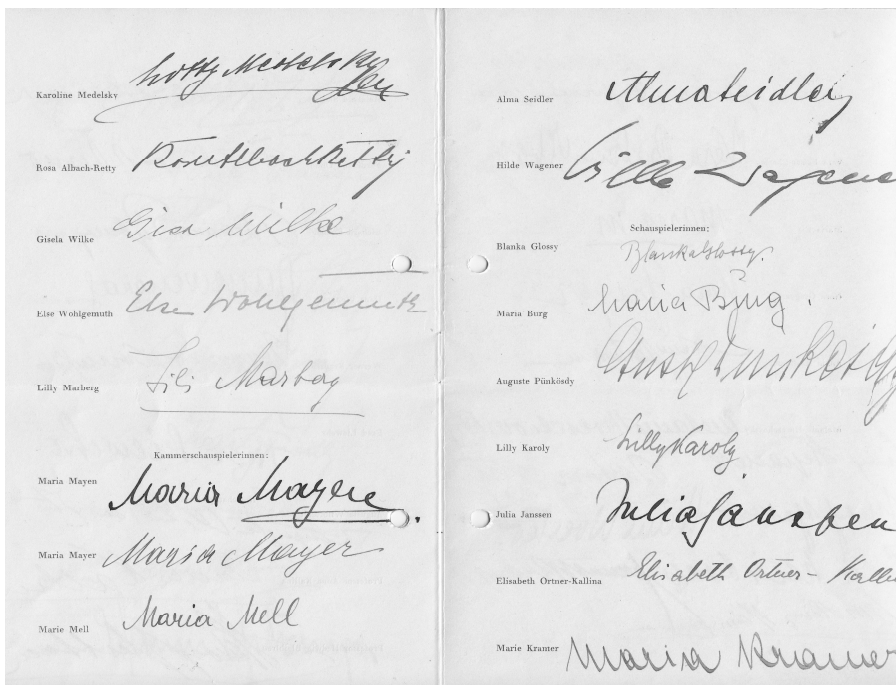 Karoline Medelsky
Lotty Medelsky
Rosa Albach-Retty
Rosa Albach Retty
Gisela Wilke
Gisa Wilke
Else Wohlgemuth
Else Wohlgemuth
Lilly Marberg
Lili Marberg
Kammerschauspielerinnen:
Maria Mayen
Maria Mayen
Maria Mayer
Maria Mayer
Marie Mell
Maria Mell
Alma Seidler
Alma Seidler
Hilde Wagener
Hilde Wagene
Schauspielerinnen:
Blanka Glossy
Blanka Glossy.
Maria Burg
Maria Burg.
Auguste Pünkösdy
Lilly Karoly
Lilly Karoly
Julia Janssen
Julia Janssen
Elisabeth Ortner-Kallina
Elisabeth Ortner-Kalli
Marie Kramer
Maria Kramer